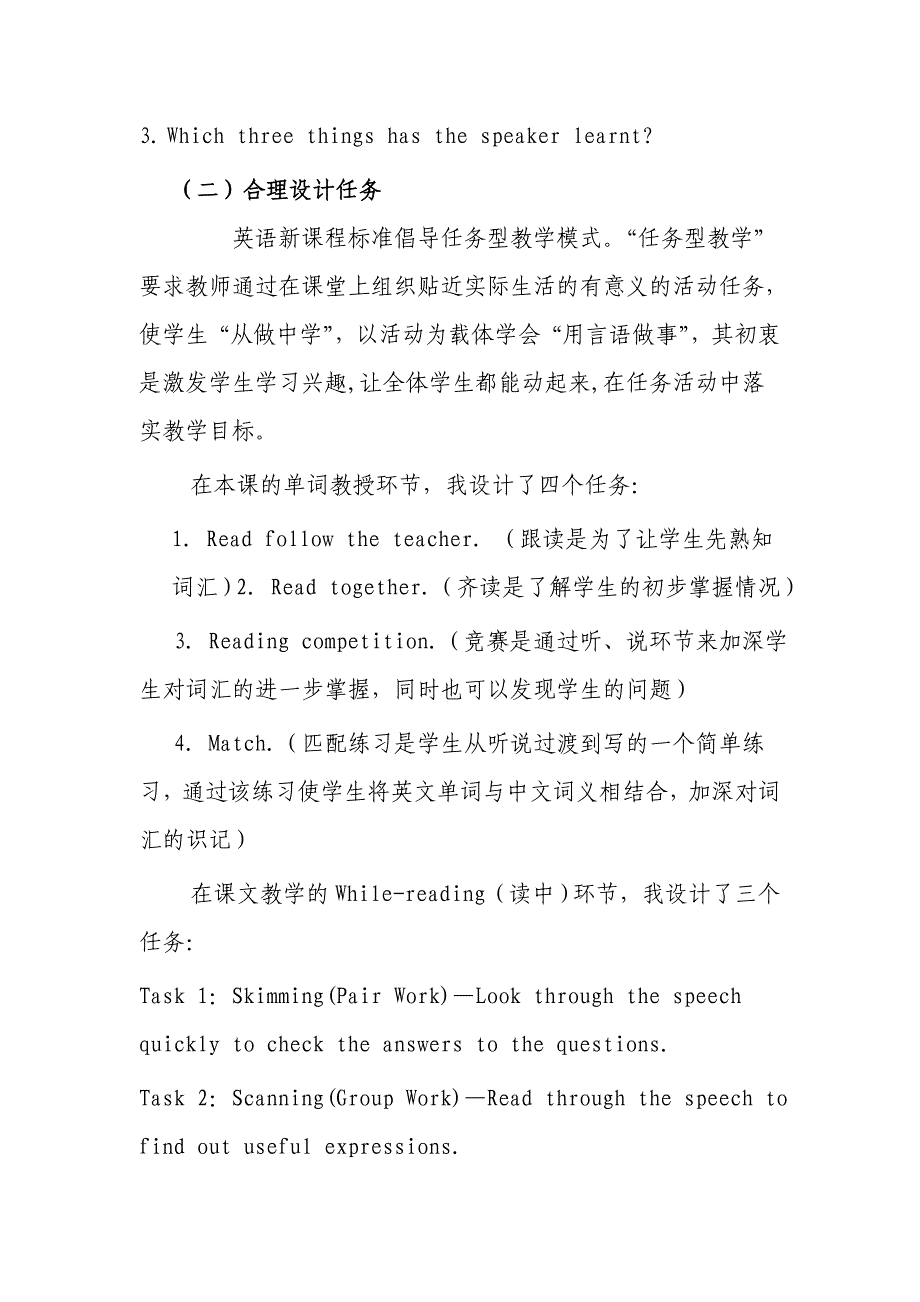 3. Which three things has the speaker learnt?
（二）合理设计任务
英语新课程标准倡导任务型教学模式。“任务型教学”
要求教师通过在课堂上组织贴近实际生活的有意义的活动任务，
使学生“从做中学”，以活动为载体学会“用言语做事”，其初衷
是激发学生学习兴趣,让全体学生都能动起来,在任务活动中落
实教学目标。
在本课的单词教授环节，我设计了四个任务：
1. Read follow the teacher. （跟读是为了让学生先熟知
词汇）2. Read together.（齐读是了解学生的初步掌握情况）
3. Reading competition.（竞赛是通过听、说环节来加深学
生对词汇的进一步掌握，同时也可以发现学生的问题）
4. Match.（匹配练习是学生从听说过渡到写的一个简单练
习，通过该练习使学生将英文单词与中文词义相结合，加深对词
汇的识记）
在课文教学的While-reading（读中）环节，我设计了三个
任务：
Task 1: Skimming(Pair Work)—Look through the speech
quickly to check the answers to the questions.
Task 2: Scanning(Group Work)—Read through the speech to
find out useful expressions.